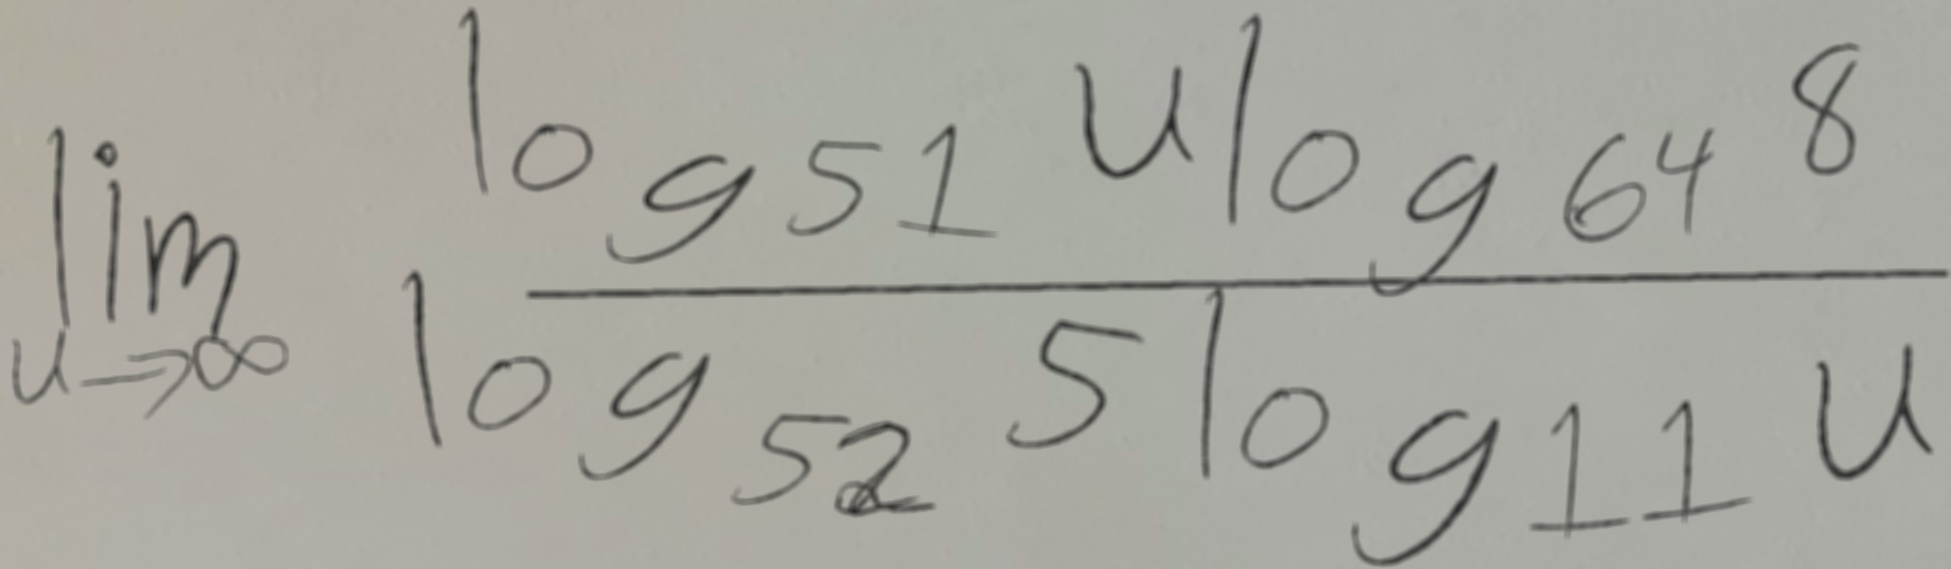 \lim_{u \to \infty} \frac{\log_{51} u \log_{64} 8}{\log_{52} 5 \log_{11} u}